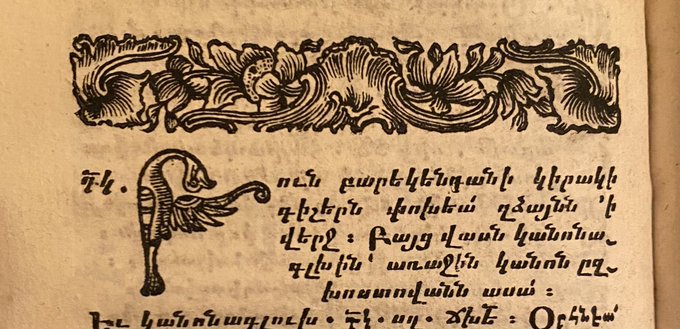 Դկ. Բուն բարեկենդանի կիրակի
գիշերն փոխեա՛ զձայնն ՚ի
վերջ ։ Բայց վասն կանոնա֊
գլխին՝ առաջին կանոն ըզ֊
խոստովանն ասա՛ ։
Եւ կանոնագլուխ . Դկ . սղ . ՃԽԷ ։ Օրհնեա՛